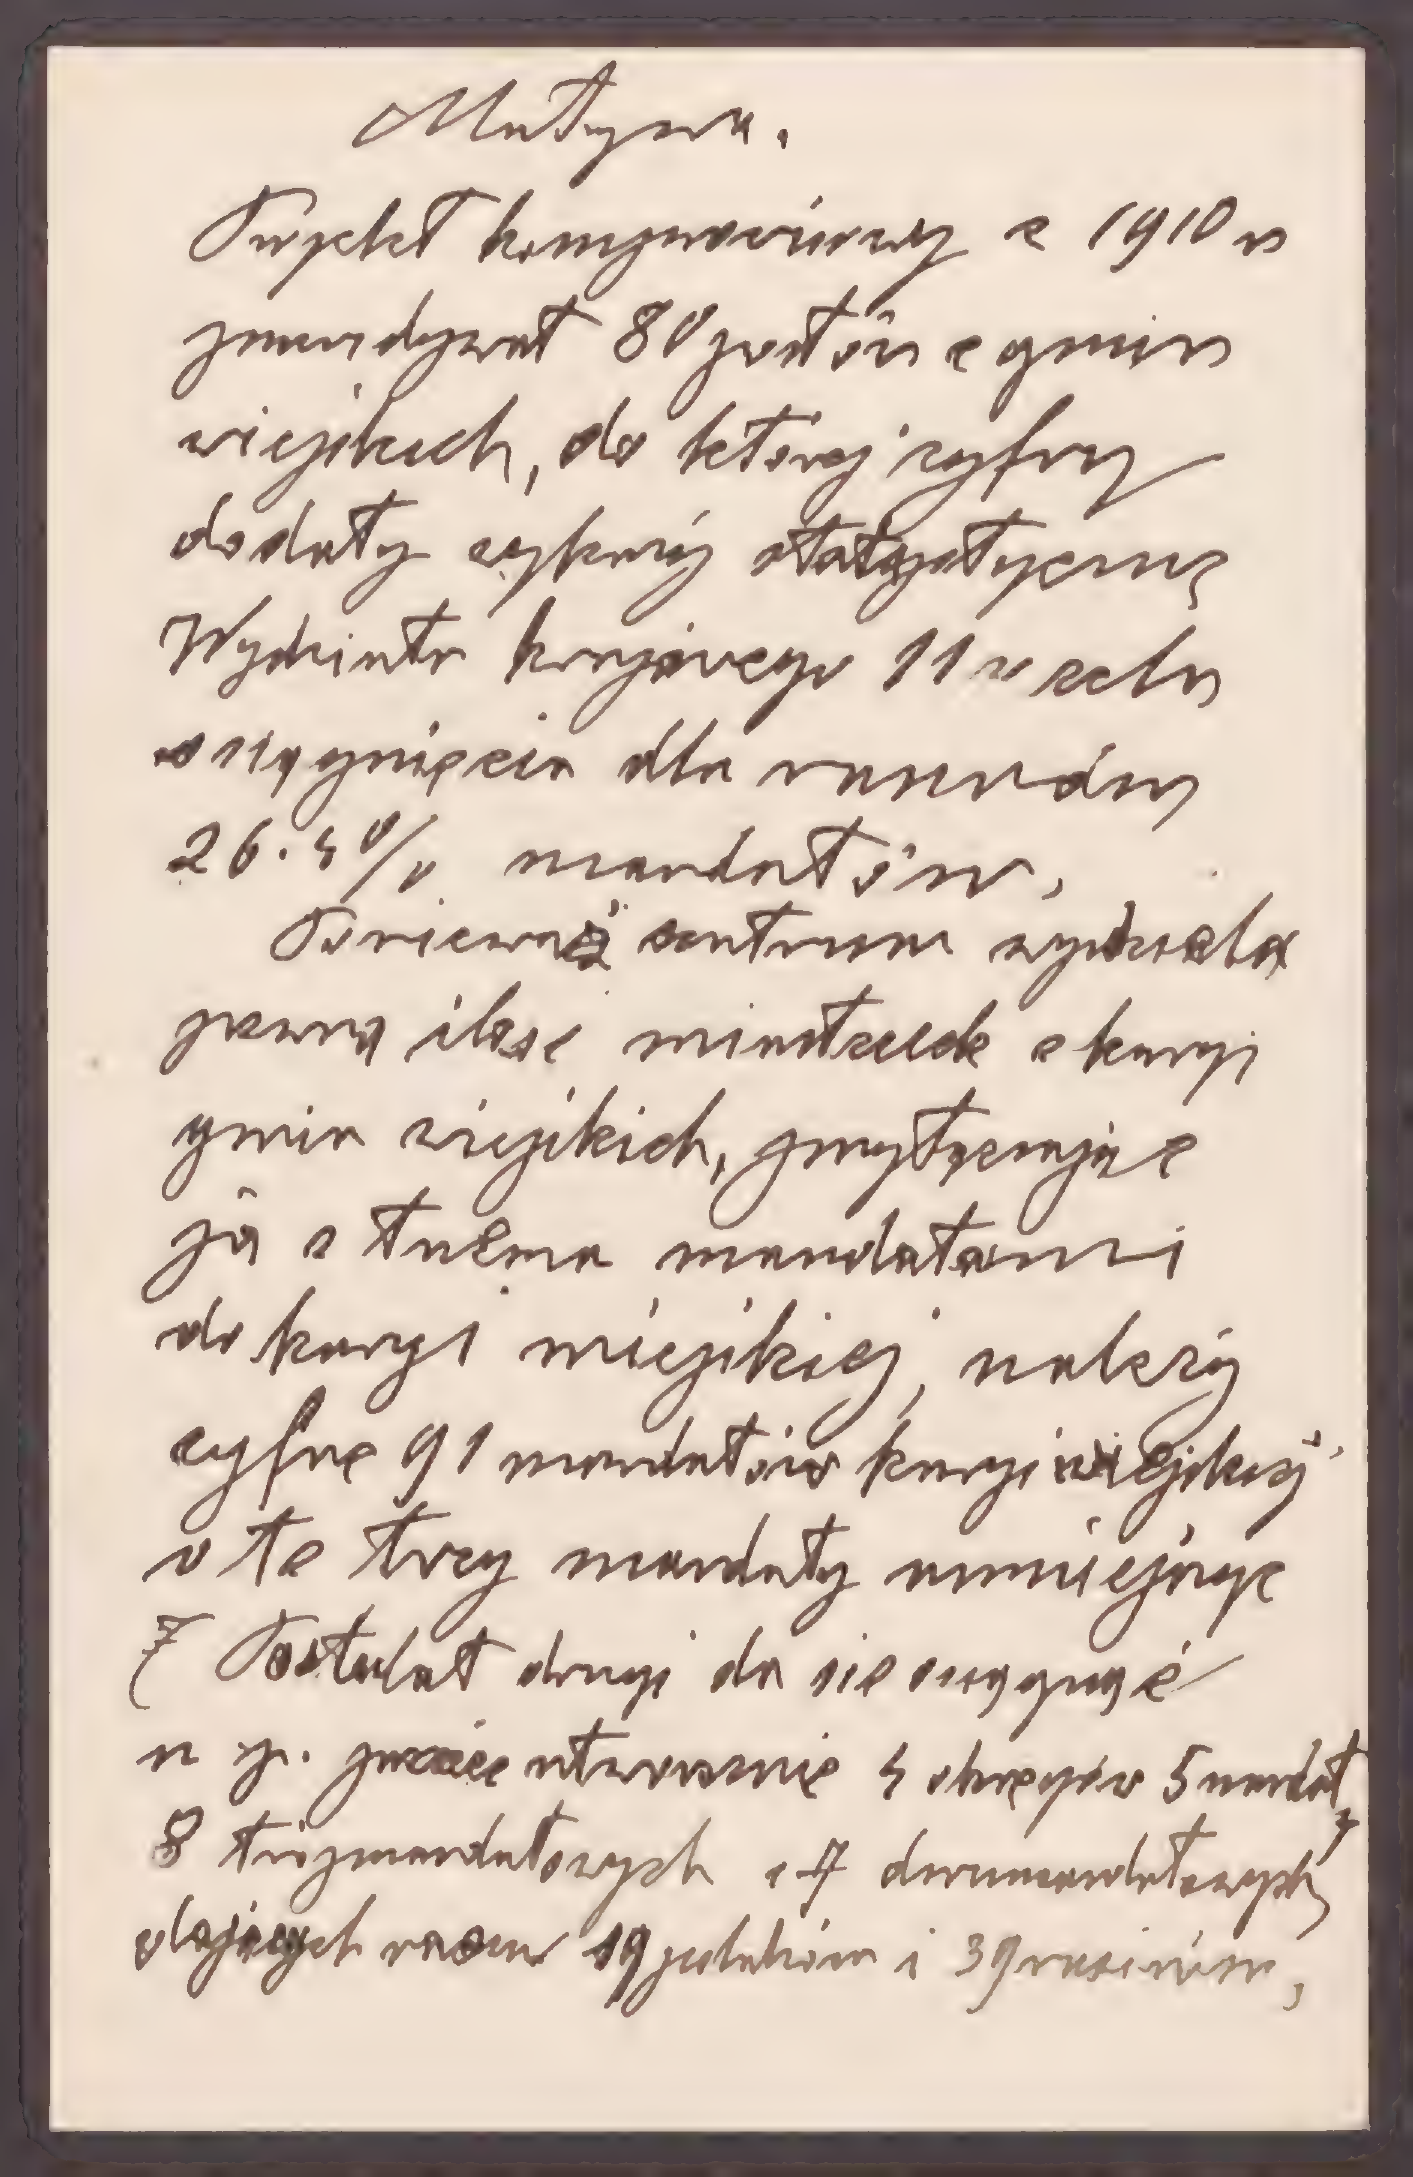 Motywa.
Projekt kompromisowy z 1910 r
propondywał 80 posłów z gmin
wiejskich, do której cyfry
dodały wykazy statystyczne
Wydziału krajowego 11 w celu
osiągnięcia dla rusinów
26.4% mandatów.
Ponieważ centrum wydziela
pewną ilość miasteczek z kuryi
gmin wiejskich, przyłączając
ją z trzema mandatami
do kuryi miejskiej, należy
cyfrę 91 mandatów kuryi wiejskiej
o te trzy mandaty umniejszyć
7 Postulat drugi da się osiągnąć
n p. przez utworzenie 4 okręgów 5 mandat
8 trójmandatowych i 7 dwumandatowych
dających razem 19 polaków i 39 rusinów,